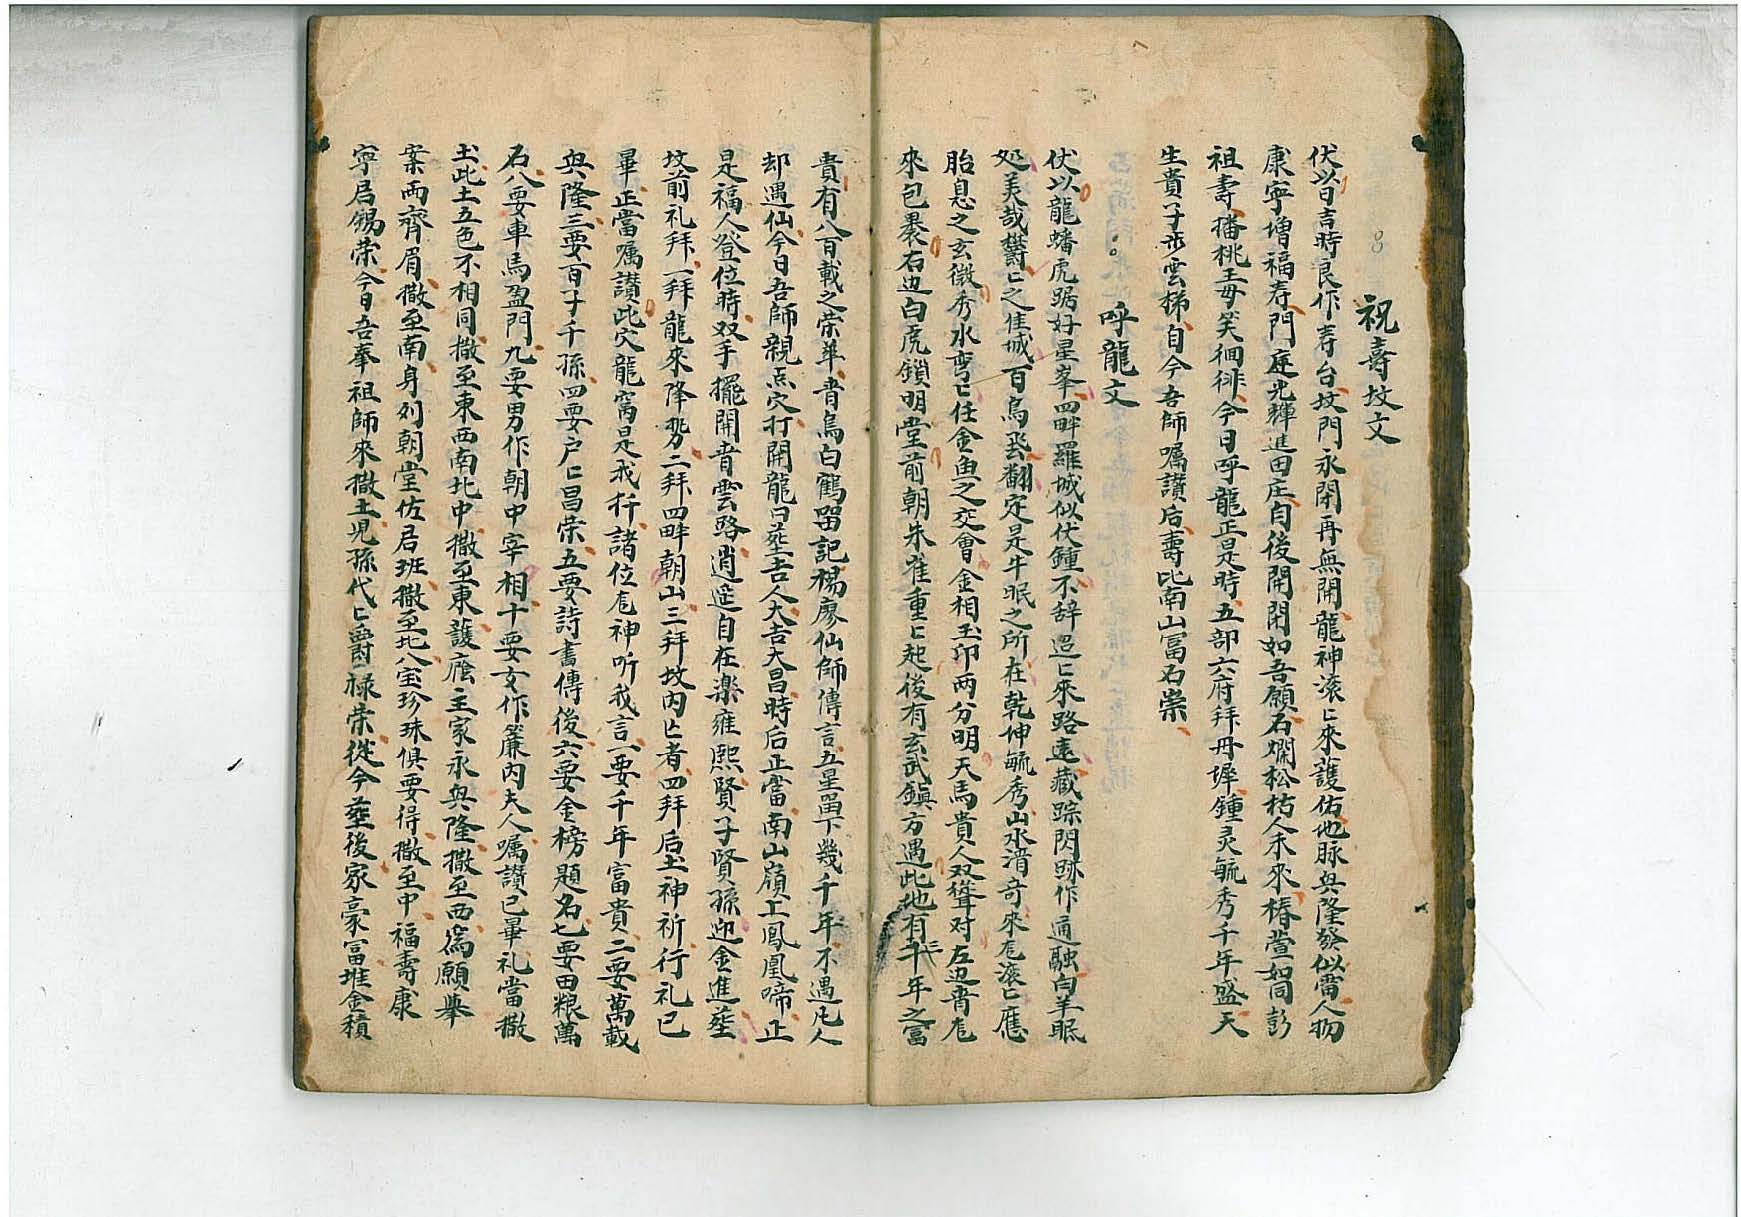 祝壽坟文
伏以日吉時良作寿台坟門永閉再無開龍神滚〻來護佑地脉興隆發似雷人物
康寧增福寿門庭光輝進田庄自後開閉如吾願石爛松枯人未來椿萱如同彭
祖壽播桃王母笑徊徘今日呼龍正是時五部六府拜丹墀鍾灵毓秀千年盛天
生貴子步雲梯自今吾師嘱讃后壽比南山冨石崇
呼龍文
伏以龍蟠虎踞好星峯四畔羅城似伏鍾不辞迢〻來路遠藏踪閃跡作通融白羊眠
処美哉欝〻之佳城百鳥飛翻定是牛眠之所在乾坤毓秀山水清奇來龙滚〻應
胎息之玄徴秀水弯〻任金鱼之交會金相玉印两分明天馬貴人双聳对左边青龙
來包裹右边白虎鎖明堂前朝朱雀重〻起後有玄武鎮方遇此地有三千年之冨
貴有八百載之荣華青烏白鶴留記楊廖仙師傳言五星留下幾千年不遇凢人
却遇仙今日吾師親点穴打開龍口塟吉人大吉大昌時后正當南山嶺上鳳凰啼正
是福人登位時双手擺開青雲路逍遥自在楽雍熙賢子賢孫迎金進塟
坟前礼拜一拜龍來降势二拜四畔朝山三拜坟内亡者四拜后土神祈行礼已
畢正當嘱讃此穴龍窩是我扦諸位龙神听我言一要千年富貴二要萬載
興隆三要百子千孫四要户〻昌荣五要詩書傳後六要金榜題名七要田粮萬
石八要車馬盈門九要男作朝中宰相十要女作簾内夫人嘱讃已畢礼當撒
土此土五色不相同撒至東西南北中撒至東護廕主家永興隆撒至西為願舉
案両齊眉撒至南身列朝堂佐君班撒至北八宝珍珠俱要得撒至中福壽康
寧居錫荣今日吾奉祖師來撒土児孫代〻爵禄荣從今塟後家豪冨堆金積